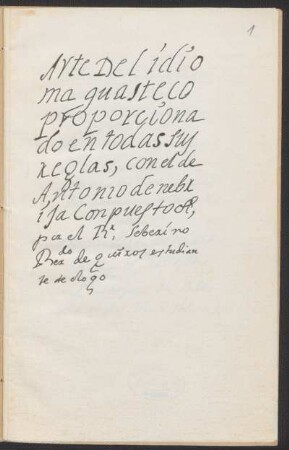 1
Arte Del idio
ma guasteco
proporçiona
do en todas suz
reglas, con el de
Antonio de nebr
ija Conpuesto
por el Rr. Seberino
Berdo de quiros estudian
te